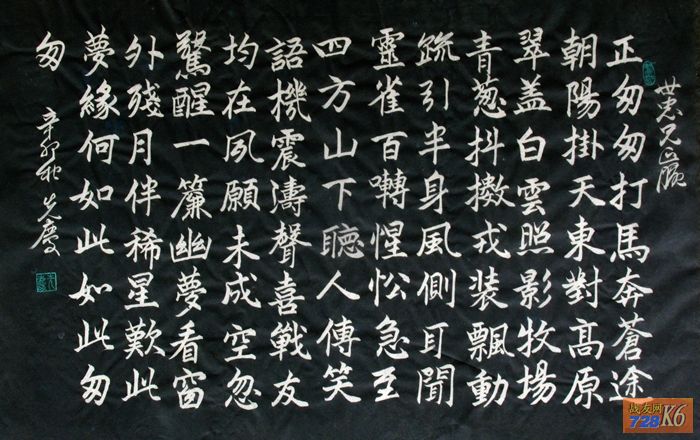 世忠兄正
正匆匆打馬奔蒼途
朝陽掛天東對髙原
翠盖白雲照影牧場
青葱抖擻戎装飄動
疏引半身風側耳聞
靈雀百囀惺忪急至
四方山下聽人傳笑
語機震濤聲喜戰友
均在夙願未成空忽
驚醒一簾幽夢看窗
外殘月伴稀星歎此
夢緣何如此如此匆
匆
辛卯秋 先慶
战友网
728 K6